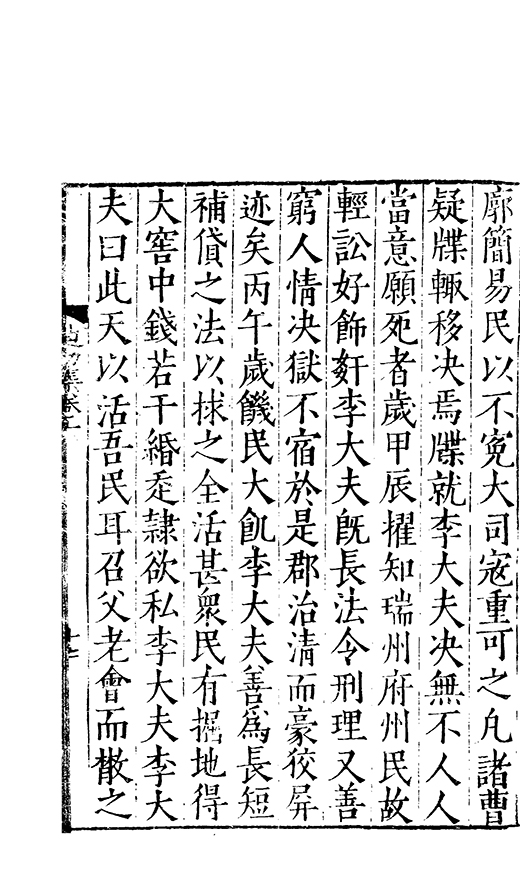 廓簡易民以不寃大司寇重可之凡諸曹
疑牒輙移决焉牒就李大夫决無不人人
當意願死者歲甲辰擢知瑞州府州民故
輕訟好飾姧李大夫既長法令刑理又善
窮人情决獄不宿於是郡治清而豪狡屏
迹矣丙午歲饑民大飢李大夫善爲長短
補貸之法以捄之全活甚衆民有掘地得
大窖中錢若干緡走隷欲私李大夫李大
夫曰此天以活吾民耳召父老會而散之